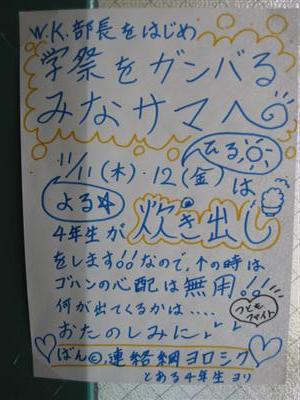 W.K.部長をはじめ
学祭をガンバる
みなサマへ
ひる
11/11(木)・12(金)は
よる
4年生が炊き出し
をします!!なので、↑の時は
ゴハンの心配は無用!!
何が出てくるかは‥‥
おたのしみに
ばん©連絡網ヨロシク
とある4年生ヨリ